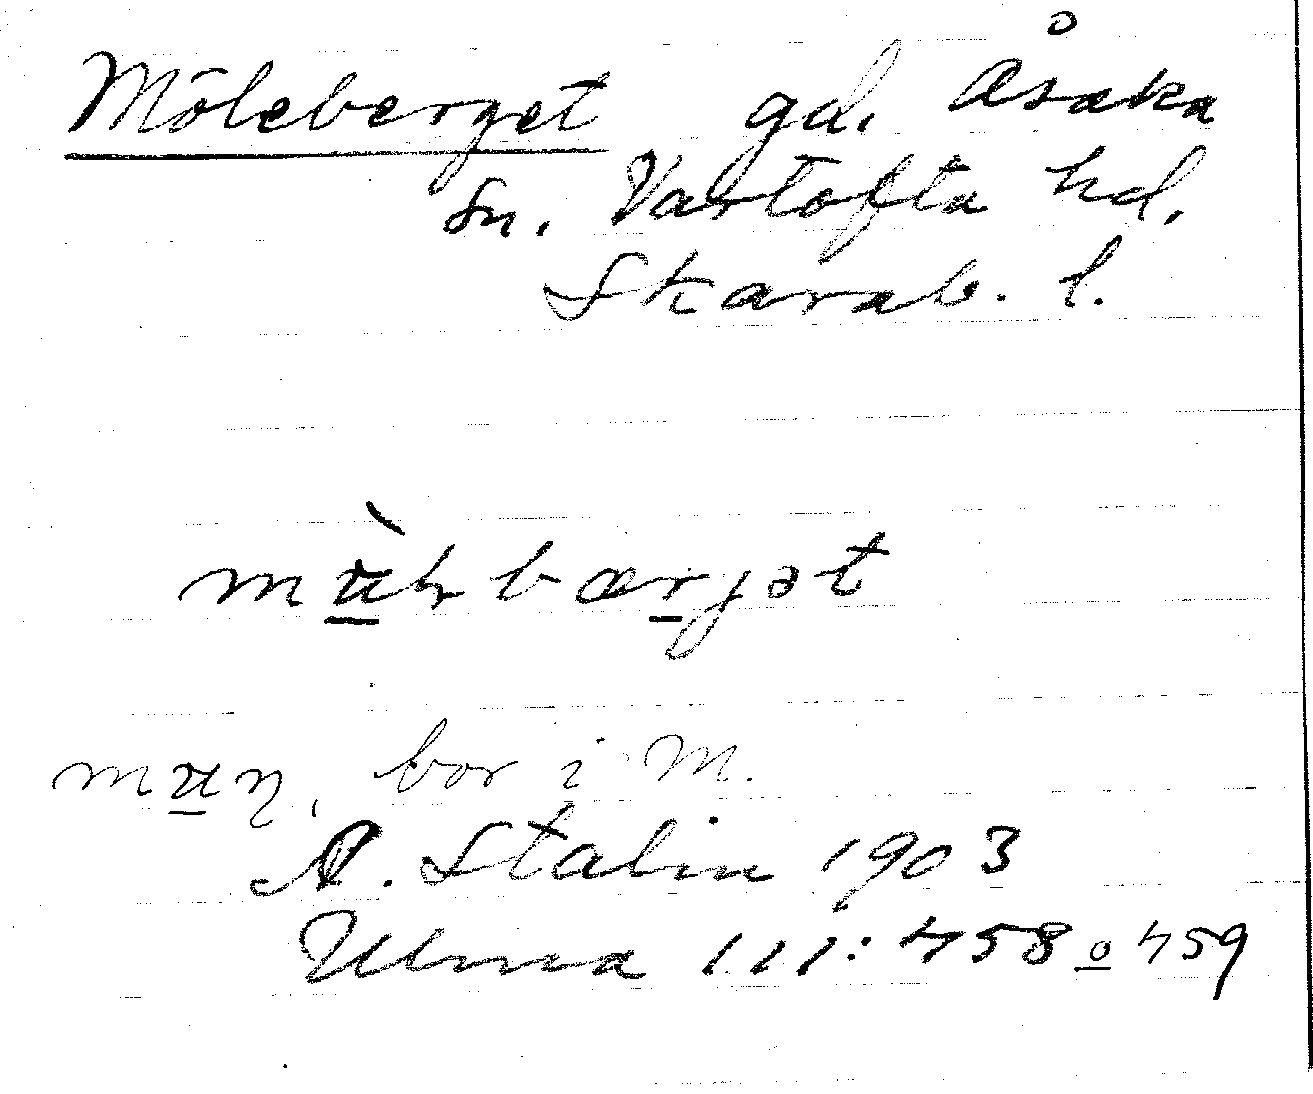 Möleberget gd. Åsaka
sn. Vartofta hd.
Skarab. l.
bor i M.
A. Stalin 1903
Ulma 111:458 o 459